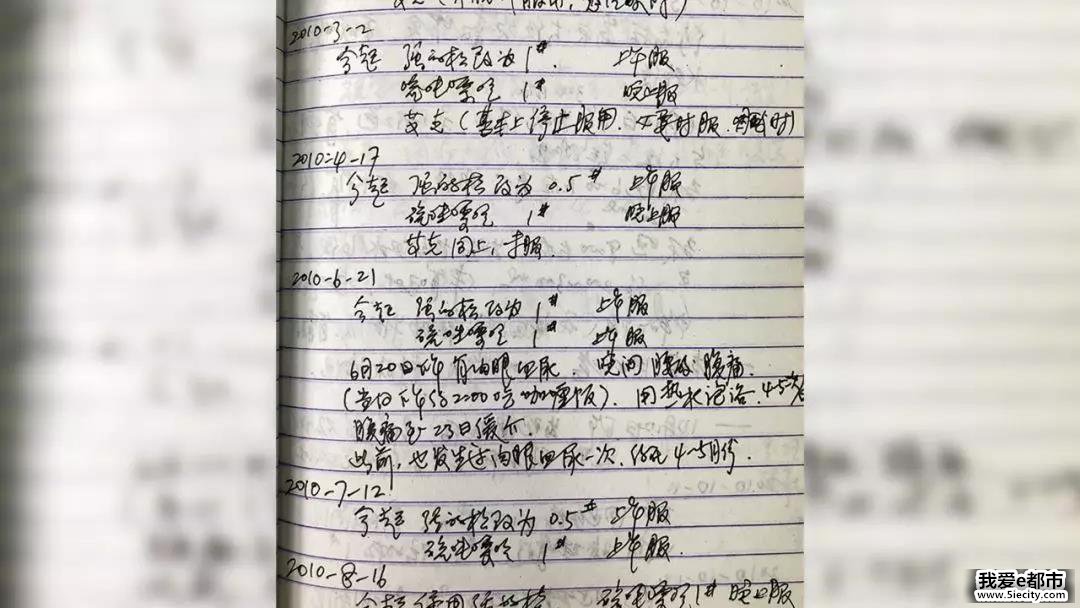 2010-3-2
今起 强的松改为 1# 上午服
硫唑嘌呤 1# 晚上服
艾克(基本上停止服用,必要时服, 时)
2010-4-17
今起 强的松改为 0.5# 上午服
硫唑嘌呤 1# 晚上服
艾克同上,未服.
2010-6-21
今起 强的松改为 1# 上午服
硫唑嘌呤 1# 上午服
6月20日下午有肉眼血尿. 晚间腰酸腹痛.
(当日下午 2:00吃咖喱饭). 用热水泡浴.4-5次
腹痛至23日缓介.
此前,也发生过肉眼血尿一次, 4~5月份.
2010-7-12
今起 强的松改为 0.5# 上午服
硫唑嘌呤 1# 上午服.
2010-8-16
今起停用强的松 硫唑嘌呤1# 晚上服
我爱e都市
www.5iecity.com